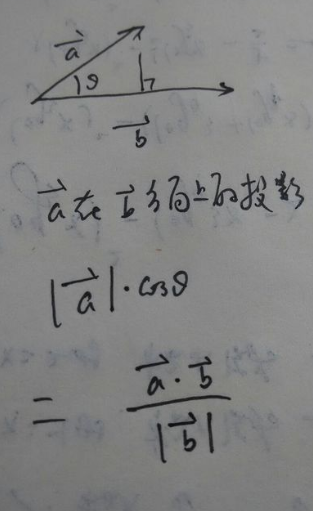 a⃗ θ
b⃗
a⃗在b⃗方向上的投影
|a⃗|·cosθ
= a⃗·b⃗ / |b⃗|